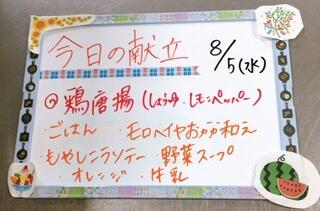 今日の献立 8/5(水)
◎鶏唐揚(しょうゆ・レモンペッパー)
・ごはん ・モロヘイヤおかか和え
・もやしニラソテー ・野菜スープ
・オレンジ ・牛乳